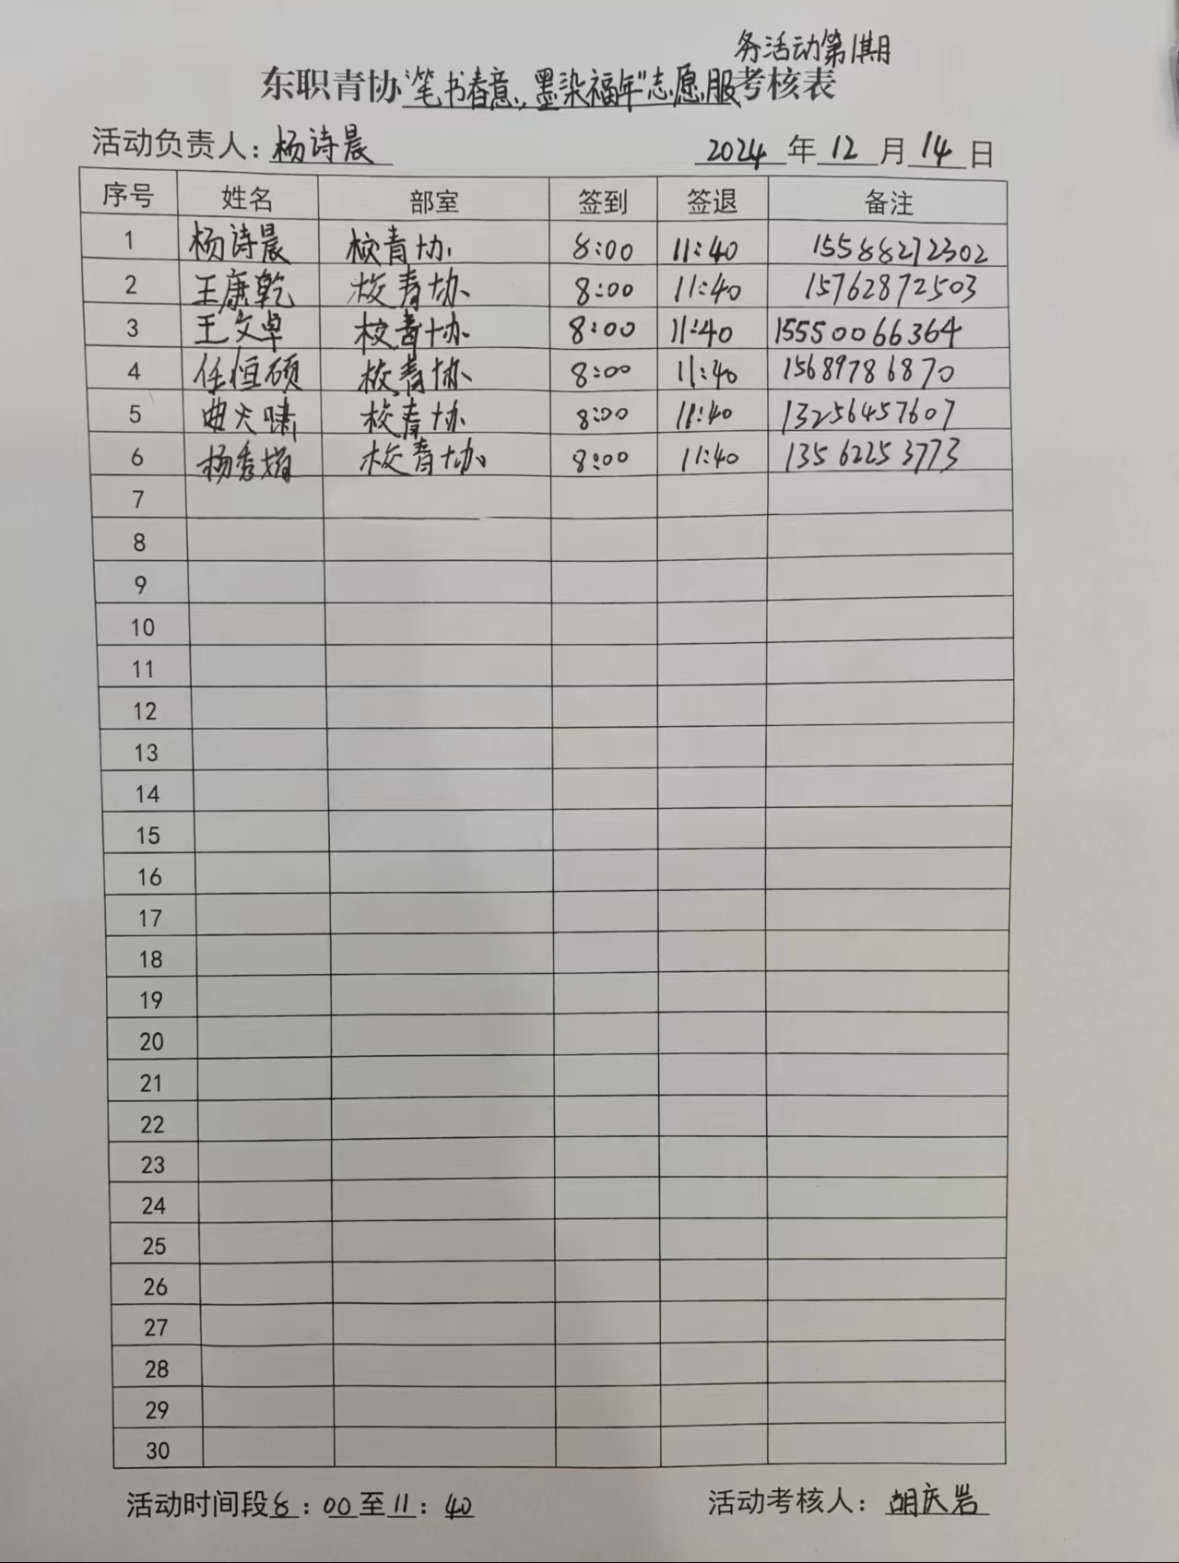 务活动第1期
东职青协"笔书春意,墨染福年"志愿服考核表
活动负责人:杨诗晨 2024年12月14日
序号 姓名 部室 签到 签退 备注
1 杨诗晨 校青协 8:00 11:40 15588272302
2 王康乾 校青协 8:00 11:40 15762872503
3 王文卓 校青协 8:00 11:40 15550066364
4 任恒硕 校青协 8:00 11:40 15689786870
5 曲天啸 校青协 8:00 11:40 13256457607
6 校青协 8:00 11:40 13562253773
7
8
9
10
11
12
13
14
15
16
17
18
19
20
21
22
23
24
25
26
27
28
29
30
活动时间段8:00至11:40 活动考核人:胡庆岩